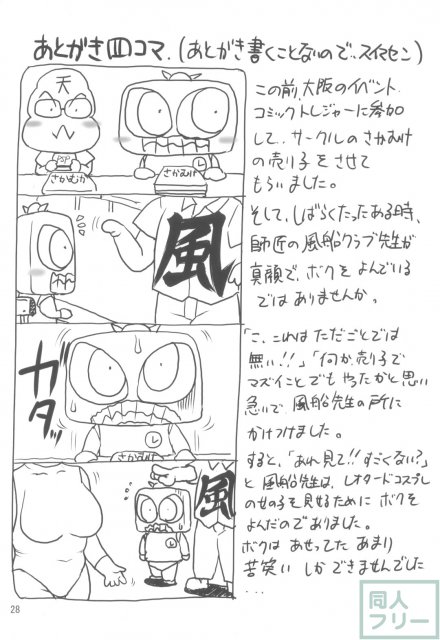 あとがき四コマ.(あとがき書くことないので..スイマセン)
この前、大阪のイベント
コミックトレジャーに参加
して、サークルのさかむけ
の売り子をさせて
もらいました。
そして、しばらくたったある時、
師匠の風船クラブ先生が
真顔で、ボクをよんでいる
ではありませんか。
「こ、これはただごとでは
無い!!」「何か、売り子で
マズイことでもやったかと思い
急いで、風船先生の所に
かけつけました。
すると、「あれ見て!!すごくない?」
と風船先生は、レオタードコスプレ
の女の子を見せるためにボクを
よんだのでありました。
ボクはあせってたあまり
苦笑いしかできませんでした
....
天
PSP
さかむけ
さかむけ
風
ガタッ
さかむけ
風
28
同人
フリー